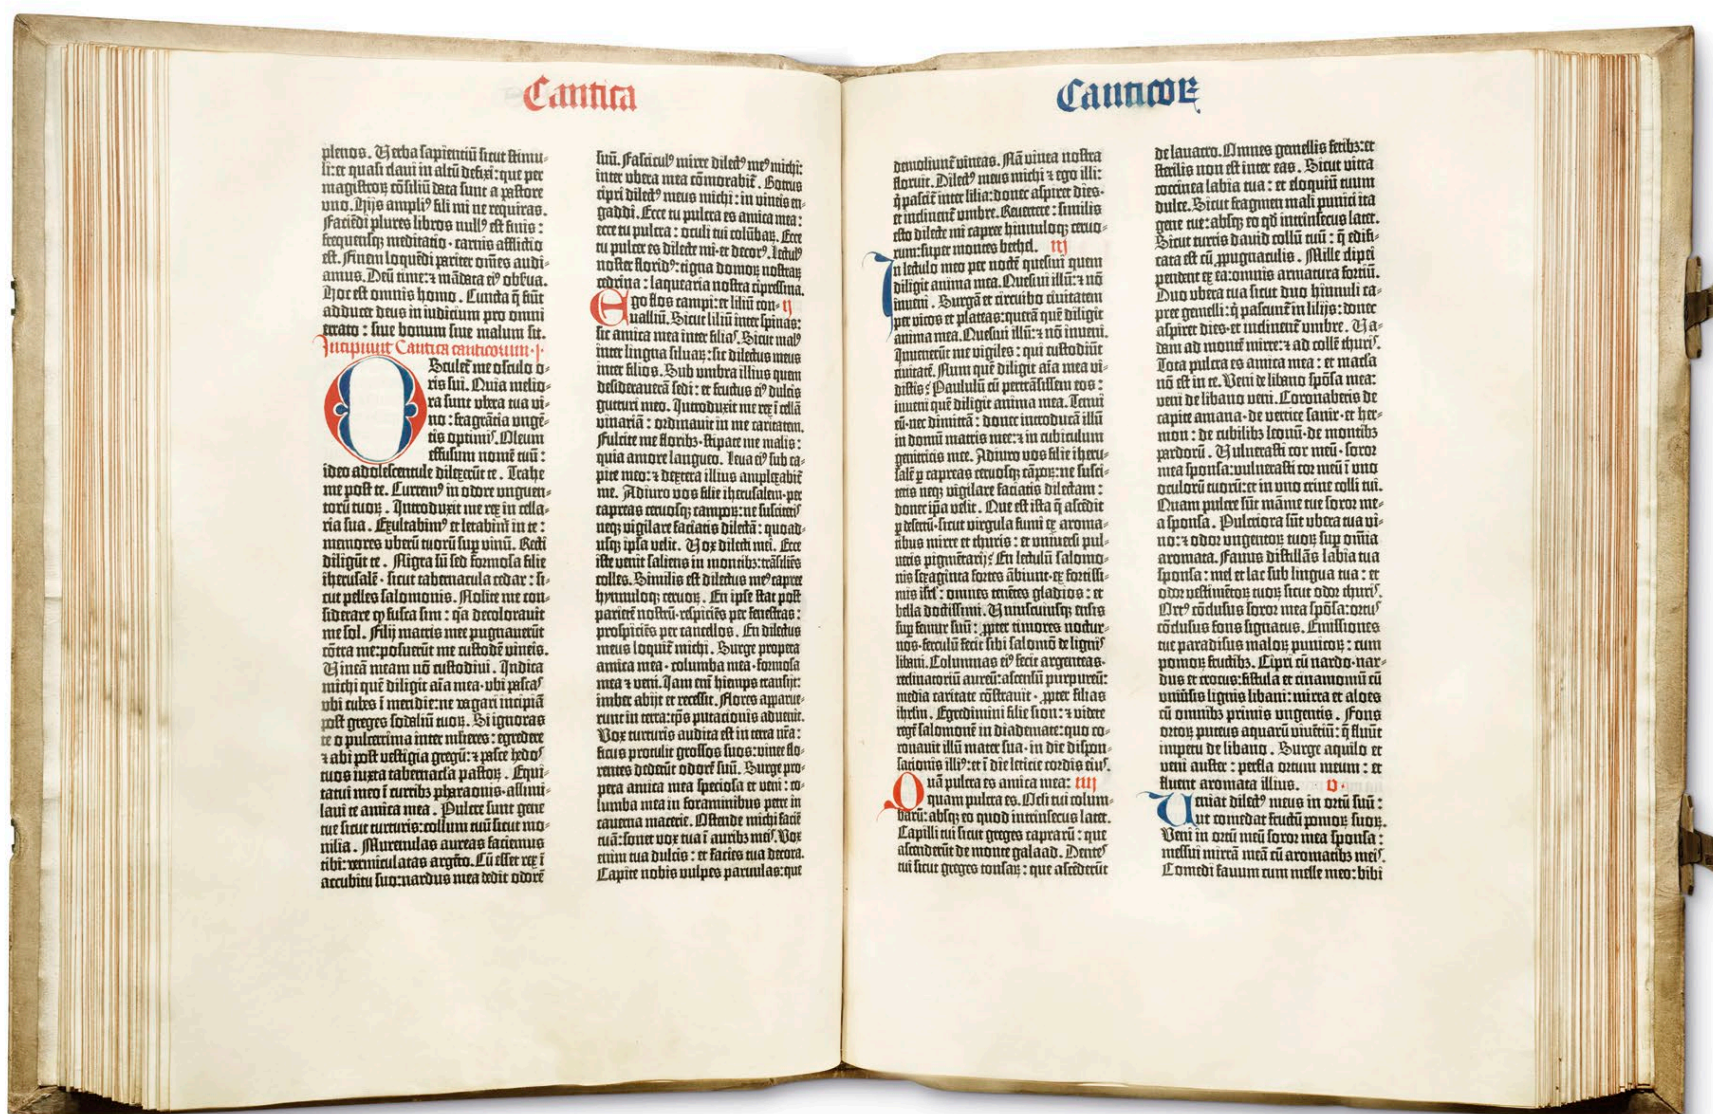 Cantica
plenos. Verba sapientiū sicut stimu-
li: et quasi claui in altū defixi: que per
magistroꝝ cōsiliū data sunt a pastore
vno. Hijs ampliꝰ fili mi ne requiras.
Faciēdi plures libros nullꝰ est finis:
frequensqꝫ meditatio · carnis afflictio
est. Finem loquēdi pariter om̄es audi-
amus. Deū time: ⁊ mādata eiꝰ obserua.
Hoc est omnis homo. Cuncta q̄ fiūt
adducet deus in iudicium pro omni
errato : siue bonum siue malum sit.
Incipiunt Cantica canticorum · I ·
Osculet̄ me osculo o-
ris sui. Quia melio-
ra sunt vbera tua vi-
no : fragrācia ungē-
tis optimis. Oleum
effusum nomē tuū :
ideo adolescentule dilexerūt te . Trahe
me post te. Curremꝰ in odore unguen-
torū tuoꝝ . Introduxit me rex in cella-
ria sua . Exultabimꝰ et letabim̄ in te :
memores vberū tuorū suꝑ vinū. Recti
diligūt te . Nigra sū sed formosa filie
iherusalē · sicut tabernacula cedar : si-
cut pelles salomonis. Nolite me con-
siderare ꝙ fusca sim : q̄a decolorauit
me sol. Filij matris mee pugnauerūt
cōtra me: posuerūt me custodē vineis.
Vineā meam nō custodiui. Indica
michi quē diligit aīa mea · vbi pascas
vbi cubes ī meridie: ne vagari incipiā
post greges sodaliū tuoꝝ. Si ignoras
te o pulcerrima inter mulieres : egredere
⁊ abi post vestigia gregū: ⁊ pasce hedos
tuos iuxta tabernacla pastoꝝ . Equi-
tatui meo ī curribꝫ pharaonis · assimi-
laui te amica mea . Pulcre sunt gene
tue sicut turturis: collum tuū sicut mo-
nilia . Murenulas aureas faciemus
tibi: vermiculatas argēto. Cū esset rex ī
accubitu suo: nardus mea dedit odorē
suū. Fasciculꝰ mirre dilectꝰ meꝰ michi:
inter vbera mea cōmorabit̄ . Botrus
cipri dilectꝰ meus michi : in vineis en-
gaddi. Ecce tu pulcra es amica mea :
ecce tu pulcra : oculi tui colūbaꝝ. Ecce
tu pulcer es dilecte mi · et decorꝰ. Lectulꝰ
noster floridꝰ: tigna domoꝝ nostraꝝ
cedrina : laquearia nostra cipressina.
Ego flos campi: et liliū con- II
ualliū. Sicut liliū inter spinas:
sic amica mea inter filias. Sicut malꝰ
inter lingna siluaꝝ: sic dilectus meus
inter filios. Sub vmbra illius quem
desiderauerā sedi : et fructus eiꝰ dulcis
gutturi meo. Introduxit me rex ī cellā
vinariā : ordinauit in me caritatem.
Fulcite me floribꝫ · stipate me malis :
quia amore langueo. Leua eiꝰ sub ca-
pite meo: ⁊ dextera illius amplexabit̄
me. Adiuro vos filie iherusalem · per
capreas ceruosqꝫ campoꝝ: ne suscitetis
neqꝫ vigilare faciatis dilectā : quoad-
usqꝫ ipsa velit. Vox dilecti mei. Ecce
iste venit saliens in montibꝫ: trāsiliēs
colles. Similis est dilectus meꝰ capree
hynnuloqꝫ ceruoꝝ. En ipse stat post
parietē nostrū · respiciēs per fenestras :
prospiciēs per cancellos. En dilectus
meus loquit̄ michi. Surge propera
amica mea · columba mea · formosa
mea ⁊ veni. Iam em̄ hiemps transijt:
imber abijt et recessit. Flores apparue-
runt in terra: tp̄s putacionis aduenit.
Vox turturis audita est in terra nr̄a :
ficus protulit grossos suos: vinee flo-
rentes dederūt odorē suū. Surge pro-
pera amica mea speciosa et veni : co-
lumba mea in foraminibus petre in
cauerna macerie. Ostende michi faciē
tuā: sonet vox tua ī auribꝫ meis. Vox
enim tua dulcis : et facies tua decora.
Capite nobis vulpes paruulas: que
Canticoꝝ
demoliunt̄ vineas. Nā vinea nostra
floruit. Dilectꝰ meus michi ⁊ ego illi:
q̄ pascit̄ inter lilia: donec aspiret dies ·
et inclinent̄ vmbre. Reuertere : similis
esto dilecte mi capree hinnuloqꝫ ceruo-
rum: super montes bethel. III
In lectulo meo per noctē quesiui quem
diligit anima mea. Quesiui illū: ⁊ nō
inueni . Surgā et circuibo ciuitatem
per vicos et plateas: querā quē diligit
anima mea. Quesiui illū: ⁊ nō inueni.
Inuenerūt me vigiles : qui custodiūt
ciuitatē. Num quē diligit aīa mea vi-
distis? Paululū cū pertrāsissem eos :
inueni quē diligit anima mea. Tenui
eū · nec dimittā : donec introducā illū
in domū matris mee: ⁊ in cubiculum
genitricis mee. Adiuro vos filie iheru-
salē ꝑ capreas ceruosqꝫ cāpoꝝ: ne susci-
tetis neqꝫ vigilare faciatis dilectam :
donec ip̄a velit. Que est ista q̄ ascēdit
ꝑ desertū · sicut virgula fumi ex aroma-
tibus mirre et thuris : et vniuersi pul-
ueris pigmētarij? En lectulū salomo-
nis sexaginta fortes ābiunt · ex fortissi-
mis isrl̄ : omnes tenētes gladios : et
bella doctissimi. Vniuscuiusqꝫ ensis
suꝑ femur suū : ꝓpter timores noctur-
nos · ferculū fecit sibi salomō de lignis
libani. Columnas eiꝰ fecit argenteas ·
reclinatoriū aureū: ascensū purpureū:
media caritate cōstrauit · ꝓpter filias
ihrlm̄ . Egredimini filie sion : ⁊ videte
regē salomonē in diademate: quo co-
ronauit illū mater sua · in die dispon-
sationis illiꝰ: et ī die leticie cordis eius.
Quā pulcra es amica mea: IIII
quam pulcra es. Oculi tui colum-
barū: absqꝫ eo quod intrinsecus latet.
Capilli tui sicut greges caprarū : que
ascenderūt de monte galaad. Dentes
tui sicut greges tonsaꝝ : que ascēderūt
de lauacro. Omnes gemellis fetibꝫ: et
sterilis non est inter eas. Sicut vitta
coccinea labia tua : et eloquiū tuum
dulce. Sicut fragmen mali punici ita
gene tue: absqꝫ eo qd̄ intrinsecus latet.
Sicut turris dauid collū tuū : q̄ edifi-
cata est cū ꝓpugnaculis. Mille clipei
pendent ex ea: omnis armatura fortiū.
Duo vbera tua sicut duo hinnuli ca-
pree gemelli: q̄ pascunt̄ in lilijs: donec
aspiret dies · et inclinent̄ vmbre. Va-
dam ad montē mirre: ⁊ ad collē thuris.
Tota pulcra es amica mea : et macla
nō est in te. Veni de libano spōsa mea:
veni de libano veni. Coronaberis de
capite amana · de vertice sanir · et her-
mon : de cubilibꝫ leonū · de montibꝫ
pardorū . Vulnerasti cor meū · soror
mea sponsa: vulnerasti cor meū ī vno
oculorū tuorū: et in vno crine colli tui.
Quam pulcre sūt māme tue soror me-
a sponsa. Pulcriora sūt vbera tua vi-
no: ⁊ odor vngentoꝝ tuoꝝ suꝑ om̄ia
aromata. Fauus distillās labia tua
sponsa : mel et lac sub lingua tua : et
odor vestimētoꝝ tuoꝝ sicut odor thuris.
Ortꝰ cōclusus soror mea spōsa: ortus
cōclusus fons signatus. Emissiones
tue paradisus maloꝝ punicoꝝ : cum
pomoꝝ fructibꝫ. Cipri cū nardo · nar-
dus et crocus: fistula et cinamomū cū
vniūsis lignis libani : mirra et aloes
cū omnibꝫ primis vngentis . Fons
ortoꝝ puteus aquarū viuētiū: q̄ fluūt
impetu de libano . Surge aquilo et
veni auster : perfla ortum meum : et
fluent aromata illius. V ·
Veniat dilectꝰ meus in ortū suū :
vt comedat fructū pomoꝝ suoꝝ.
Veni in ortū meū soror mea sponsa :
messui mirrā meā cū aromatibꝫ meis.
Comedi fauum cum melle meo: bibi